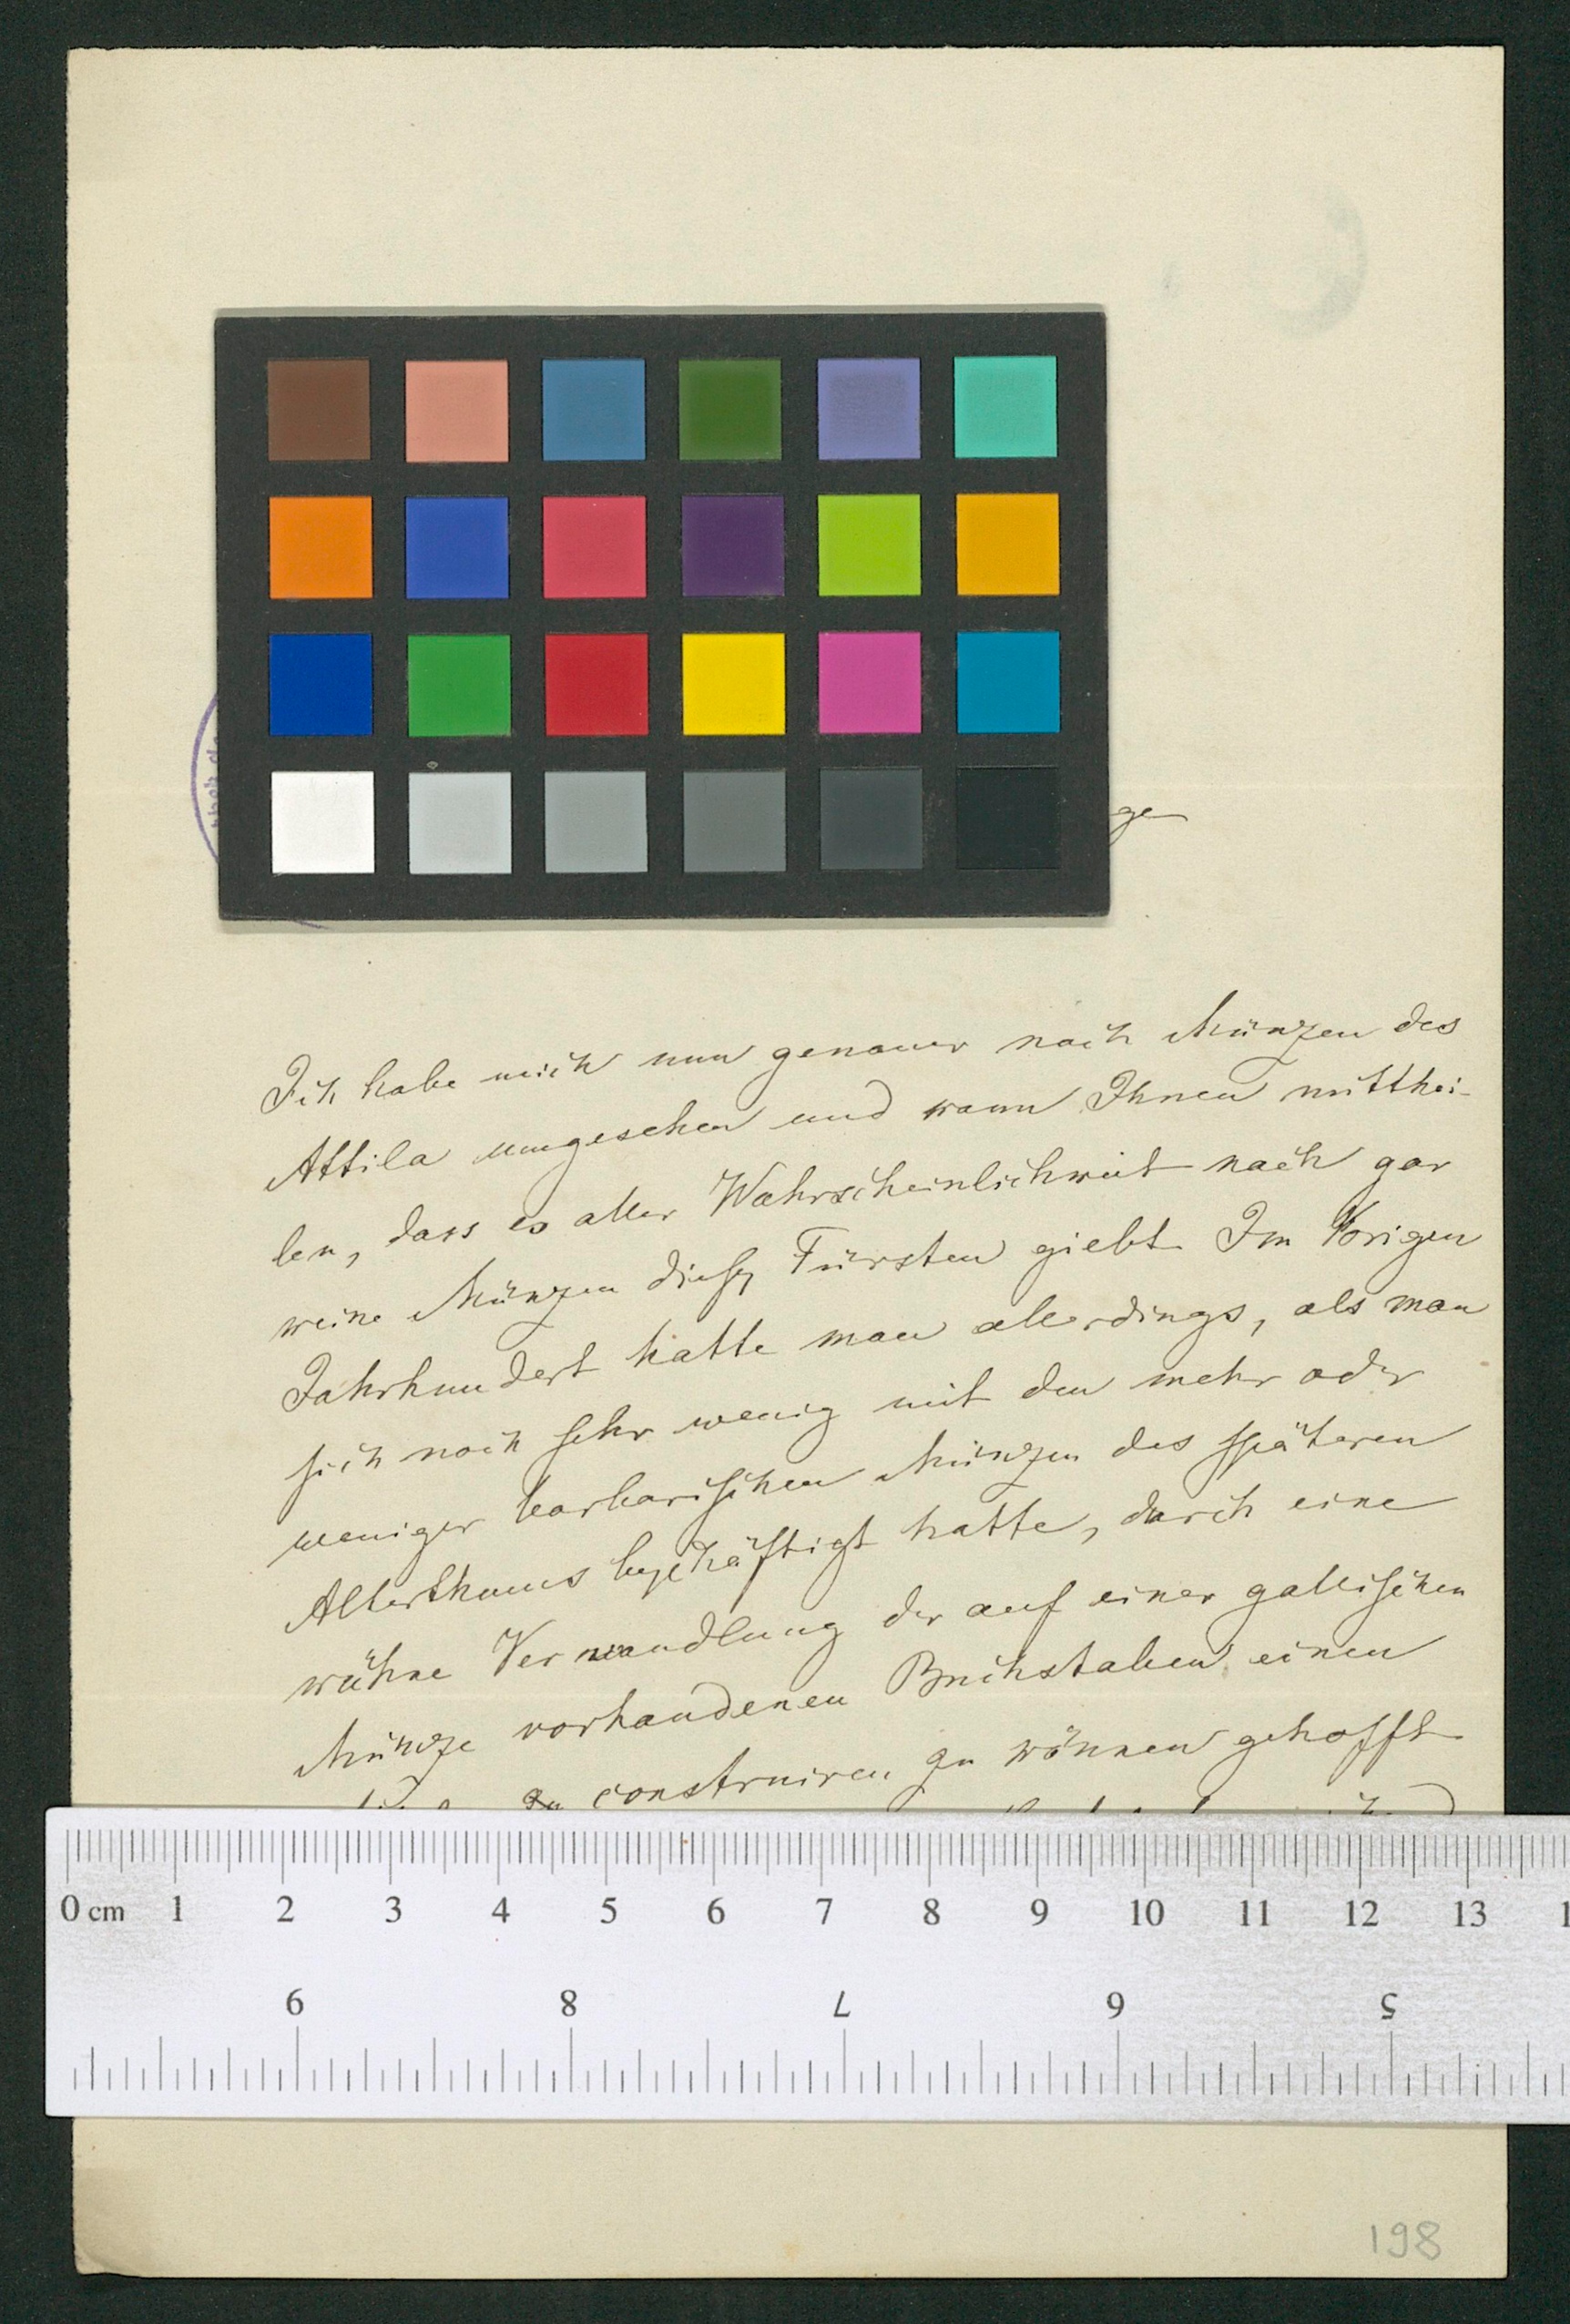 ge
Ich habe mich nun genauer nach Münzen des
Attila umgesehen und kann Ihnen mitthei-
len, dass es aller Wahrscheinlichkeit nach gar
keine Münzen dieses Fürsten giebt. Im Vorigen
Jahrhundert hatte man allerdings, als man
sich noch sehr wenig mit den mehr oder
weniger barbarischen Münzen des späteren
Alterthums beschäftigt hatte, durch eine
kühne Verwandlung der auf einer gallischen
Münze vorhandenen Buchstaben einen
zu construiren zu können gehofft
0 cm 1 2 3 4 5 6 7 8 9 10 11 12 13 1
9 8 7 6 5
198